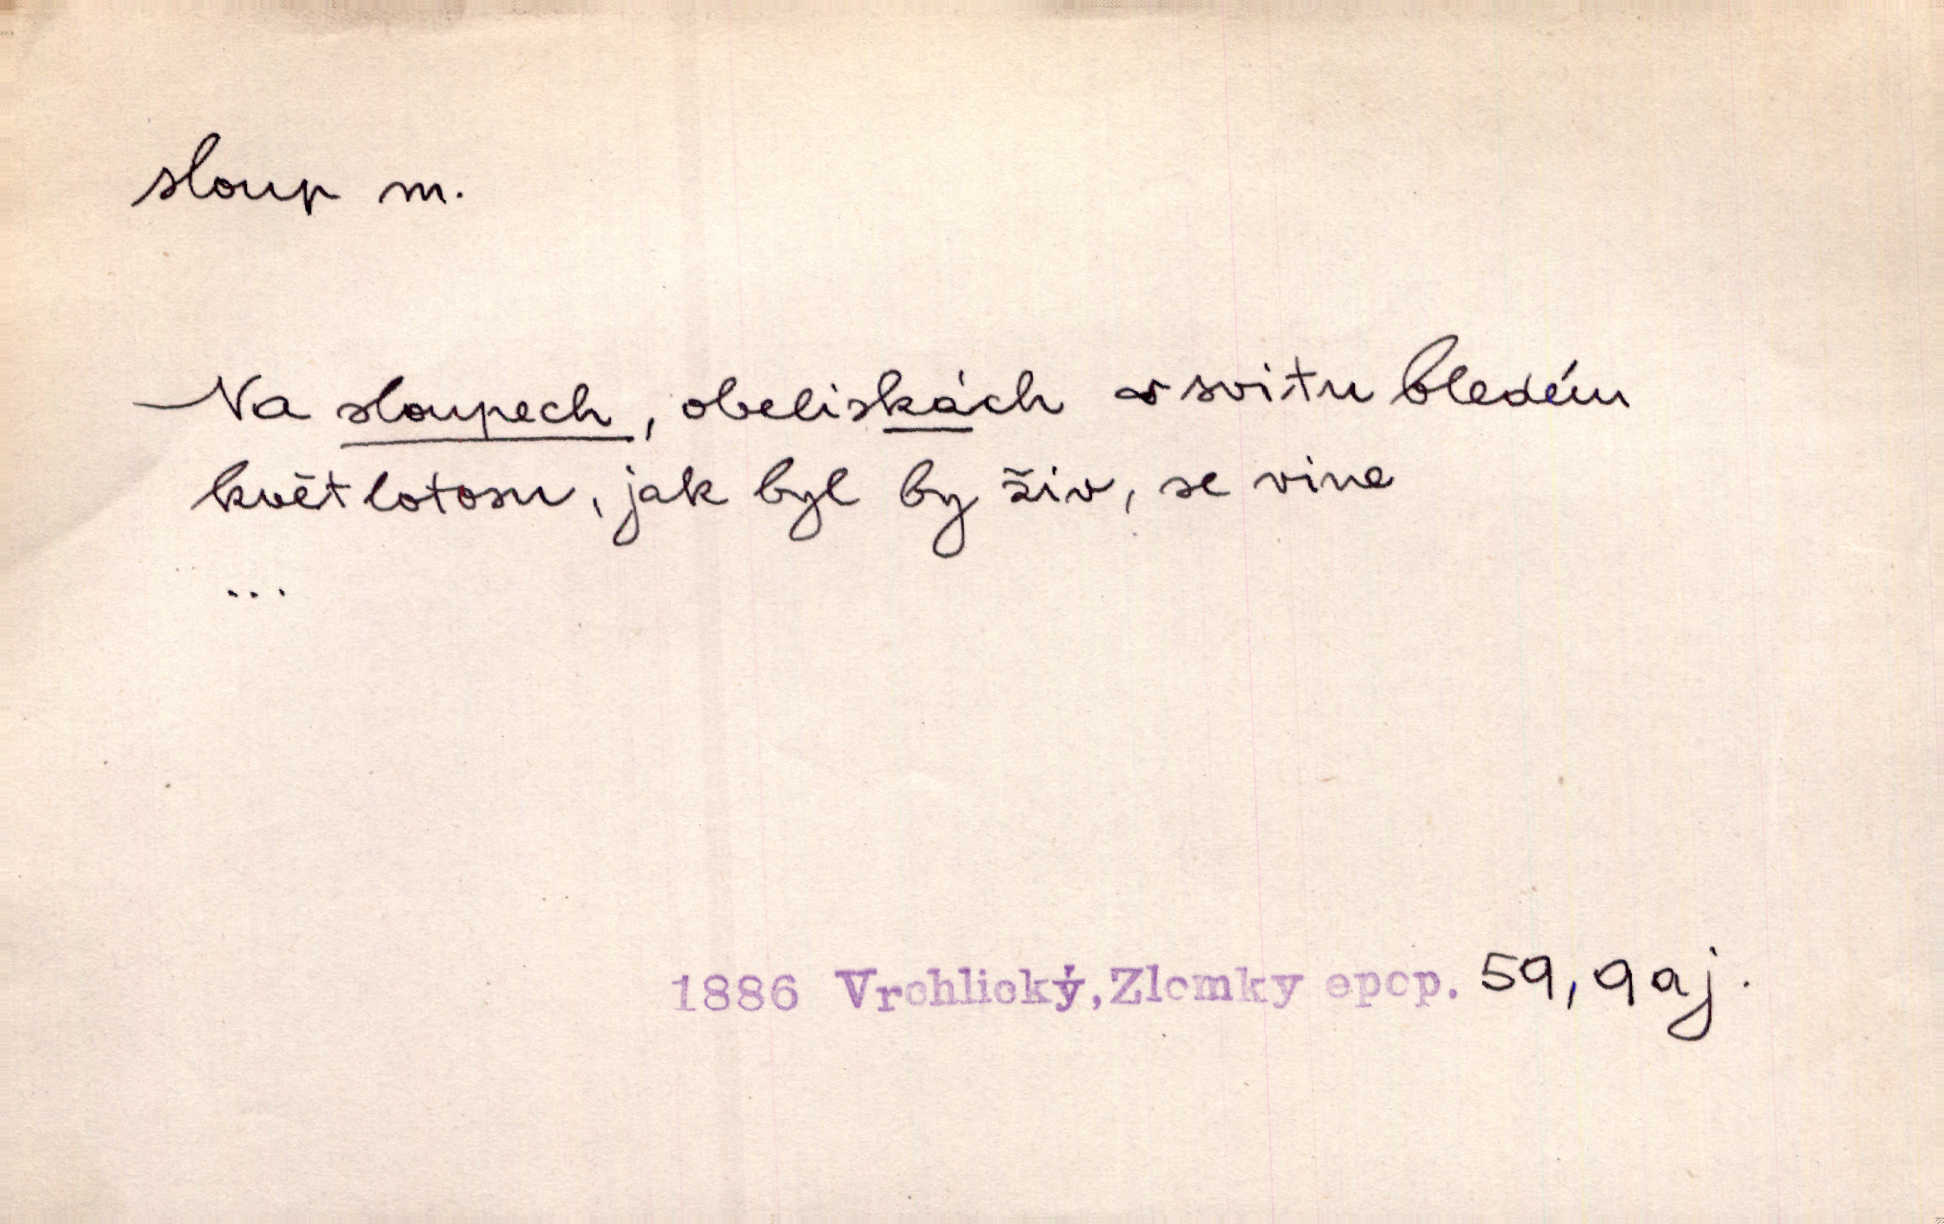 sloup m.
Na sloupech, obeliskách v svitu bledém
květ lotosu, jak byl by živ, se vine
...
1886 Vrchlický, Zlomky epop. 59, 9 aj.